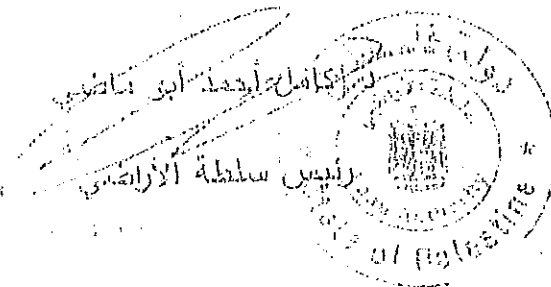 د. كامل أحمد أبو ماضي
رئيس سلطة الأراضي
دولة فلسطين
State of Palestine